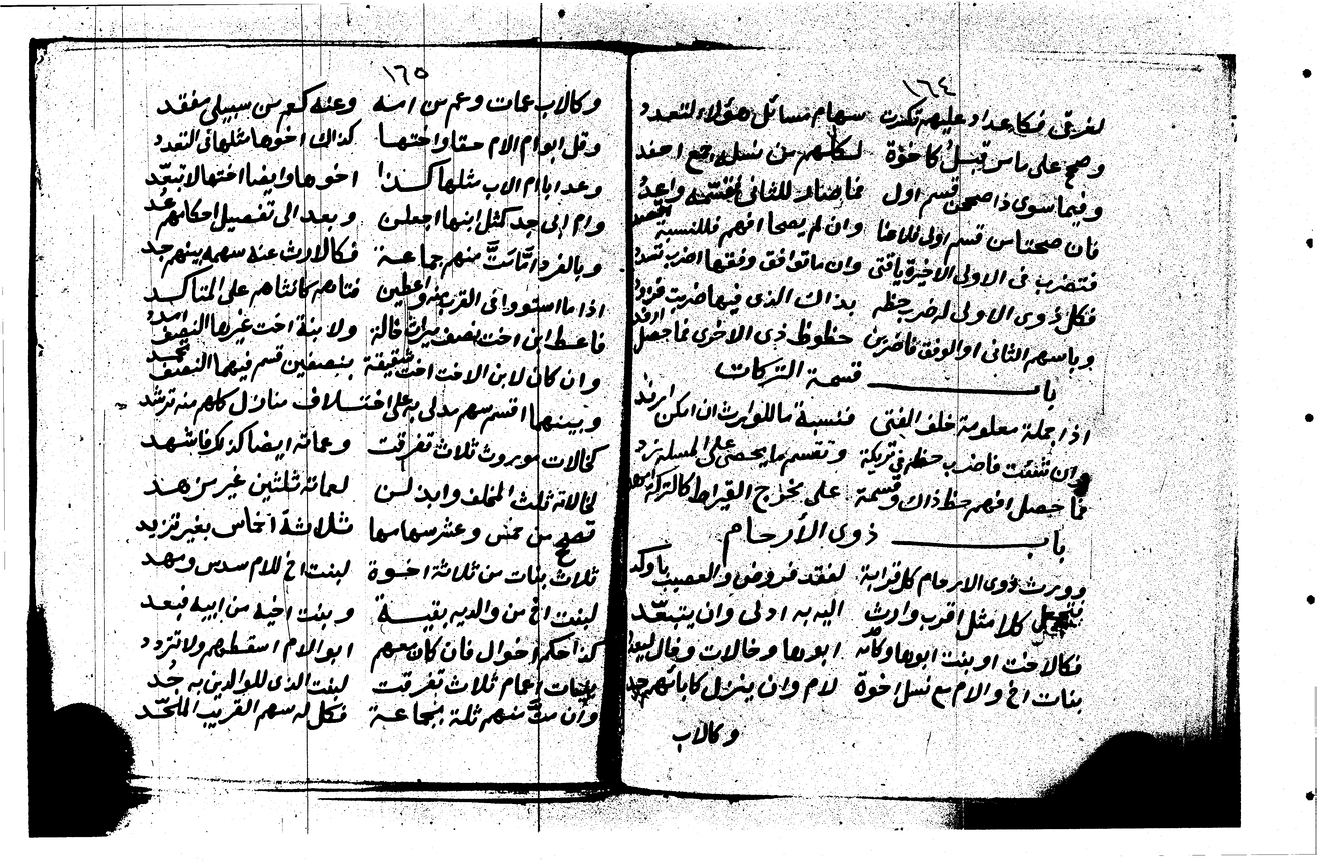 ١٦٤
لغرقى فكاعداد عليهم تكررت سهام مسائل هؤلاء لتعدد
وصح على ما من قبل كاخوة لكلهم من نسله اجمع احفد
وفيما سوى ذا صححن قسم اول فما صار للثاني اقسمه واعدد
فان صحتا من قسم اولى فلا عنا وان لم يصحا افهم فللنسبة اقصد
فتضرب في الاولى الاخيرة ياقتى وان ما توافق وفقها اضرب تسدد
فكل ذوى الاولى له ضرب حظه بذاك الذي فيها ضربت فزود
وباسهم الثانى او الوفق فاضربن حظوظ ذى الاخرى فما حصل ارفد
باب قسمة التركات
اذا جملة معلومة خلف الفتى فنسبة ما للوارث ان امكن ارفد
وان شئت فاضرب حظه في تريكة وتقسم ما يحصى على المسله تزد
فما حصل افهم حظ ذاك وقسمة على مخرج القيراط كالتركة
باب ذوى الأرحام
وورث ذوى الارحام كل قرابة لفقد فروض والعصيب باوكد
فتجعل كلا مثل اقرب وارث اليه به ادلى وان يتبعد
فكالاخت او بنت ابوها وكأم ابوها وخالات وخال
بنات اخ والام مع نسل اخوة لام وان ينزل كابائهم جد
وكالاب
١٦٥
وكالاب عمات وعم من امه وعنه كعم من سبيلى مفقد
وقل ابو ام الام حقا واختها كذاك اخوها مثلها فى التعدد
وعد ابا ام الاب مثلها كذا اخوها وايضا اختها لا تبعد
وام الى جد كمثل ابنها اجعلن وبعد الى تفصيل احكامهم عد
وبالفرد ان متّ منهم جماعة فكالارث عنه سهمه بينهم جد
اذا ما استووا فى القرب منه واعطين فتاهم كانثاهم على المتاكد
فاعط ابن اخت نصف ميراث خالة ولابنة اخت غيرها النصف امدد
وان كان لابن الاخت اخت شقيقة بنصفين قسم فيهما النصف تحمد
وبينهما اقسم سهم مدلى به على اختلاف منازل كلهم منه ترشد
كخالات موروث ثلاث تفرقت وعماته ايضا كذلك فاشهد
لخالاته ثلث المخلف وابذلن لعماته ثلثين غير مزهد
تصح من خمس وعشر سهامها ثلاثة اخماس بغير تزيد
ثلاث بنات من ثلاثة اخوة لبنت اخ للام سدس ومهد
لبنت اخ من والديه بقيسة وبنت اخيه من ابيه فبعد
كذا حكم اخوال فان كان معهم ابو الام اسقطهم ولا تردد
بنات اعمام ثلاث تفرقت لبنت الذى للوالدين به جد
وان متّ منهم ثلة بجماعة فكل له سهم القريب الملحد